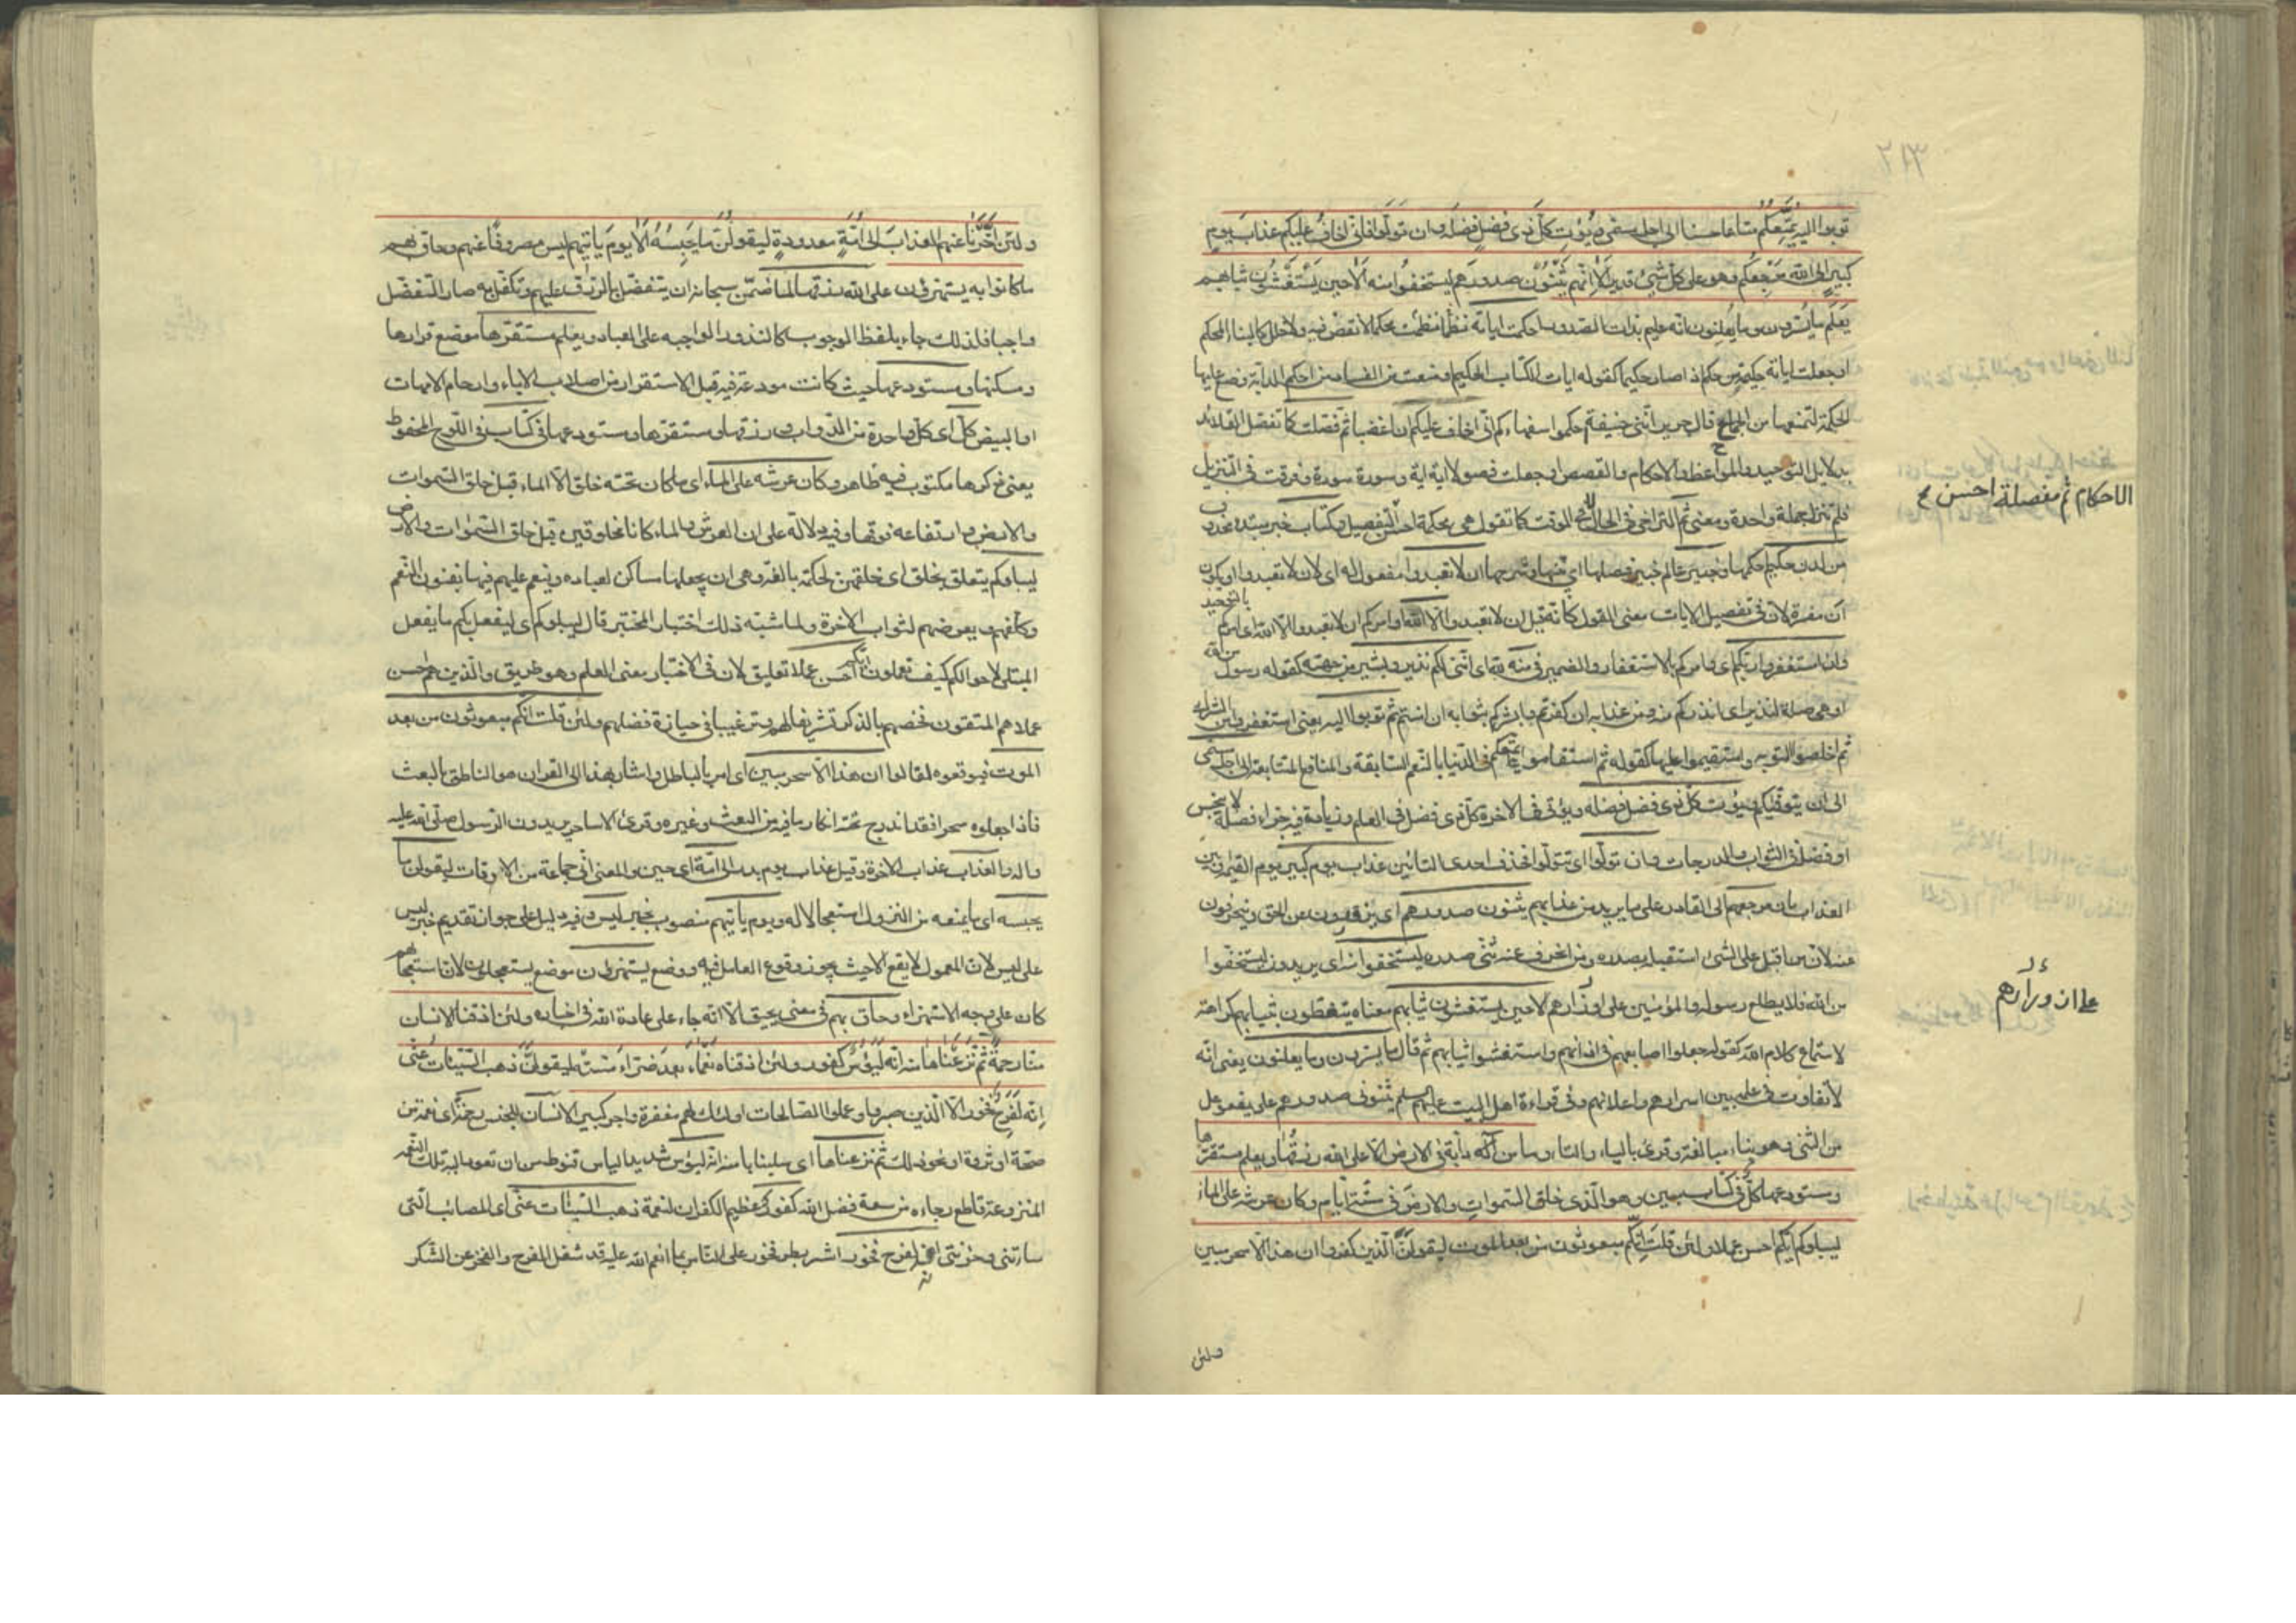 توبوا اليه يمتعكم متاعا حسنا الى اجل مسمى ويؤت كل ذى فضل فضله وان تولوا فانى اخاف عليكم عذاب يوم
كبير الى الله مرجعكم وهو على كل شئ قدير الا انهم يثنون صدورهم ليستخفوا منه الا حين يستغشون ثيابهم
يعلم ما يسرون وما يعلنون انه عليم بذات الصدور احكمت اياته نظمت نظما محكما لا نقض فيه ولا خلل كالبناء المحكم
او جعلت اياته حكيمة من حكم اذا صار حكيما كقوله ايات الكتاب الحكيم او منعت من الفساد من احكم الدابة وضع عليها
الحكمة لتمنعها من الجماح قال جرير ابنى حنيفة احكموا سفهاءكم انى اخاف عليكم ان اغضبا ثم فصلت كما تفصل القلائد
بدلايل التوحيد والمواعظ والاحكام والقصص او جعلت فصولا اية اية وسورة سورة او فرقت فى التنزيل
فلم تنزل جملة واحدة ومعنى ثم التراخى فى الحال لا فى الوقت كما تقول هى محكمة احسن التفصيل وكتاب خبر مبتدء محذوف
الاحكام ثم مفصلة احسن
من لدن حكيم احكمها وخبير عالم خبير فصلها اى بينها وشرحها ان لا تعبدوا مفعول له اى لان لا تعبدوا او يكون
ان مفسرة لان فى تفصيل الايات معنى القول كانه قيل ان لا تعبدوا الا الله او امركم ان لا تعبدوا الا الله اى امركم بالتوحيد
وان استغفروا ربكم اى وامركم بالاستغفار والضمير فى منه لله اى اننى لكم نذير وبشير من جهته كقوله رسول من الله
او هى صلة لنذير اى انذركم منه ومن عذابه ان كفرتم وابشركم بثوابه ان امنتم ثم توبوا اليه يعنى استغفروا من الشرك
ثم اخلصوا التوبة واستقيموا عليها كقوله ثم استقاموا يمتعكم فى الدنيا بالنعم السابقة والمنافع المتتابعة الى اجل مسمى
الى ان يتوفيكم ويؤت كل ذى فضل فضله ويؤتى فى الاخرة كل ذى فضل فى العلم وزيادة فيه جزاء فضله لا يبخس
او فضله فى الثواب والدرجات وان تولوا اى تتولوا فحذف احدى التائين عذاب يوم كبير يوم القيمة وبين
العذاب بان مرجعهم الى القادر على ما يريد من عذابهم يثنون صدورهم اى يزورون عن الحق وينحرفون
عنه لان من اقبل على الشئ استقبله بصدره ومن انحرف عنه ثنى صدره ليستخفوا منه اى يريدون ليستخفوا
من الله فلا يطلع رسوله والمؤمنين على اوزارهم الا حين يستغشون ثيابهم معناه يتغطون بثيابهم كراهة
على ازورارهم
لاستماع كلام الله كقوله جعلوا اصابعهم فى اذانهم واستغشوا ثيابهم ثم قال ما يسرون وما يعلنون يعنى انه
لا تفاوت فى علمه بين اسرارهم واعلانهم وفى قراءة اهل البيت عليهم السلم يثنونى صدورهم على يفعوعل
من الثنى وهو بناء مبالغة وقرئ بالياء والتاء وما من دابة فى الارض الا على الله رزقها ويعلم مستقرها
ومستودعها كل فى كتاب مبين وهو الذى خلق السموات والارض فى ستة ايام وكان عرشه على الماء
ليبلوكم ايكم احسن عملا ولئن قلت انكم مبعوثون من بعد الموت ليقولن الذين كفروا ان هذا الا سحر مبين
ولئن
ولئن اخرنا عنهم العذاب الى امة معدودة ليقولن ما يحبسه الا يوم ياتيهم ليس مصروفا عنهم وحاق بهم
ما كانوا به يستهزؤن على الله رزقها لما ضمن سبحانه ان يتفضل بالرزق عليهم وتكفل به صار التفضل
واجبا فلذلك جاء بلفظ الوجوب كالنذور الواجبة على العباد ويعلم مستقرها موضع قرارها
ومسكنها ومستودعها حيث كانت مودعة فيه قبل الاستقرار من اصلاب الاباء وارحام الامهات
او البيض كل اى كل واحدة من الدواب ورزقها ومستقرها ومستودعها فى كتاب فى اللوح المحفوظ
يعنى ذكرها مكتوب فيه ظاهر وكان عرشه على الماء اى ما كان تحته خلق الا الماء قبل خلق السموات
والارض وارتفاعه فوقها وفيه دلالة على ان العرش والماء كانا مخلوقين قبل خلق السموات والارض
ليبلوكم يتعلق بخلق اى خلقهن لحكمة بالغة وهى ان يجعلها مساكن لعباده وينعم عليهم فيها بفنون النعم
وكلفهم ويعوضهم لثواب الاخرة ولما شبه ذلك اختبار المختبر قال ليبلوكم اى ليفعل بكم ما يفعل
المبتلى لاحوالكم كيف تعملون ايكم احسن عملا تعليق لان فى الاختبار معنى العلم وهو طريق والذين هم احسن
عملا هم المتقون فخصهم بالذكر تشريفا لهم وترغيبا فى حيازة فضلهم ولئن قلت انكم مبعوثون من بعد
الموت فتوقعوه لقالوا ان هذا الا سحر مبين اى امر بالباطل واشار بهذا الى القران هو الناطق بالبعث
فاذا جعلوه سحرا فقد اندرج تحته انكار ما فيه من البعث وغيره وقرئ الا ساحر يريدون الرسول صلى الله عليه
واله والعذاب عذاب الاخرة وقيل عذاب يوم بدر الى امة اى حين والمعنى الى جماعة من الاوقات ليقولن ما
يحبسه اى ما يمنعه من النزول استعجالا له ويوم ياتيهم منصوب بخبر ليس وفيه دليل على جواز تقديم خبر ليس
على ليس لان المعمول لا يقع الا حيث يجوز وقوع العامل فيه ووضع يستهزؤن موضع يستعجلون لان استعجالهم
كان على وجه الاستهزاء وحاق بهم فى معنى يحيق الا انه جاء على عادة الله فى اخباره ولئن اذقنا الانسان
منا رحمة ثم نزعناها منه انه ليؤس كفور ولئن اذقناه نعماء بعد ضراء مسته ليقولن ذهب السيئات عنى
انه لفرح فخور الا الذين صبروا وعملوا الصالحات اولئك لهم مغفرة واجر كبير الانسان للجنس رحمة اى نعمة من
صحة او ثروة او نحو ذلك ثم نزعناها اى سلبناها منه انه ليؤس شديد الياس قنوط من ان تعود اليه تلك النعمة
المنزوعة قاطع رجاءه من سعة فضل الله كفور عظيم الكفران لنعمه ذهب السيئات عنى اى المصائب التى
ساءتنى وحزنتنى انه لفرح فخور اشر بطر فخور على الناس بما انعم الله عليه قد شغله الفرح والفخر عن الشكر